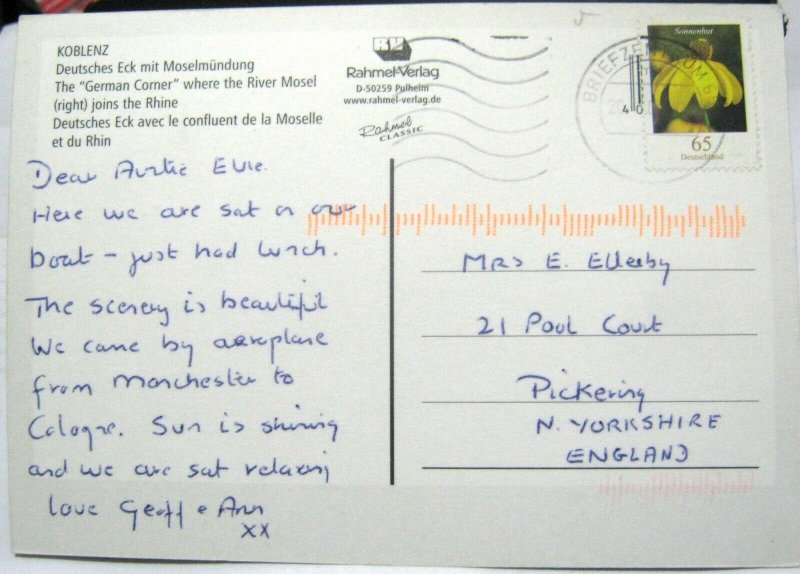 KOBLENZ
Deutsches Eck mit Moselmündung
The "German Corner" where the River Mosel
(right) joins the Rhine
Deutsches Eck avec le confluent de la Moselle
et du Rhin
RV
Rahmel-Verlag
D-50259 Pulheim
www.rahmel-verlag.de
Rahmel
CLASSIC
BRIEFZENTRUM 6
Sonnenhut
65
Deutschland
Dear Auntie Evie.
Here we are sat on our
boat - just had lunch.
The scenery is beautiful
We came by aeroplane
from Manchester to
Cologne. Sun is shining
and we are sat relaxing
love Geoff & Ann
xx
Mrs E. Ellerby
21 Pool Court
Pickering
N. YORKSHIRE
ENGLAND